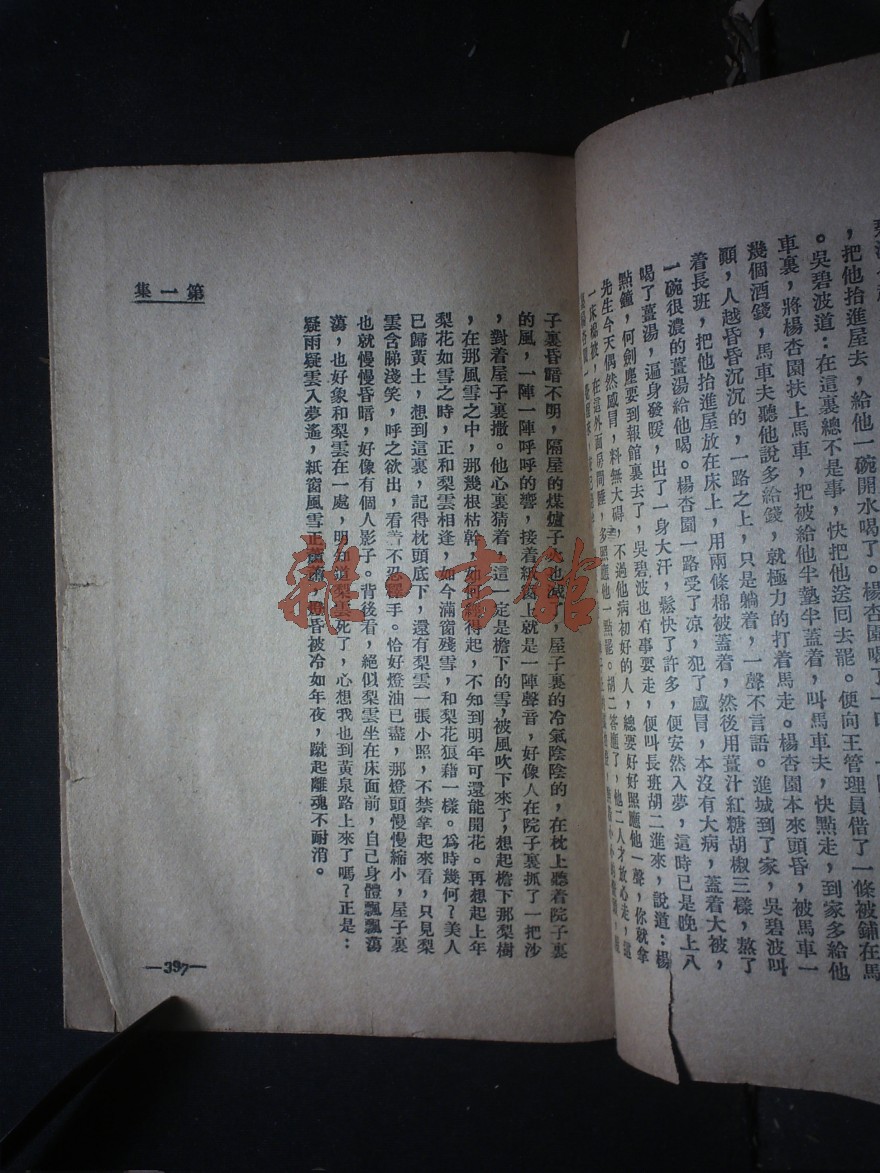 ，把他抬進屋去，給他一碗開水喝了。楊杏園喝了
。吳碧波道：在這裏總不是事，快把他送回去罷。便向王管理員借了一條被鋪在馬
車裏，將楊杏園扶上馬車，把被給他半墊半蓋着，叫馬車夫，快點走，到家多給他
幾個酒錢，馬車夫聽他說多給錢，就極力的打着馬走。楊杏園本來頭昏，被馬車一
顚，人越昏昏沉沉的，一路之上，只是躺着，一聲不言語。進城到了家，吳碧波叫
着長班，把他抬進屋放在床上，用兩條棉被蓋着，然後用薑汁紅糖胡椒三樣，熬了
一碗很濃的薑湯給他喝。楊杏園一路受了凉，犯了感冒，本沒有大病，蓋着大被，
喝了薑湯，遍身發暖，出了一身大汗，鬆快了許多，便安然入夢，這時已是晚上八
點鐘，何劍塵要到報館裏去了，吳碧波也有事要走，便叫長班胡二進來，說道：楊
先生今天偶然感冒，料無大碍，不過他病初好的人，總要好好照應他一聲，你就拿
一床棉被，在這外面房間睡，多照應他一點罷。胡二答應了，他二人才放心走，這
子裏昏暗不明，隔屋的煤爐子火也滅了，屋子裏的冷氣陰陰的，在枕上聽着院子裏
的風，一陣一陣呼呼的響，接着紙窗上就是一陣聲音，好像人在院子裏抓了一把沙
，對着屋子裏撒。他心裏猜着，這一定是檐下的雪，被風吹下來了，想起檐下那梨樹
，在那風雪之中，那幾根枯幹，如何經得起，不知到明年可還能開花。再想起上年
梨花如雪之時，正和梨雲相逢，如今滿窗殘雪，和梨花狼藉一樣。爲時幾何？美人
已歸黃土，想到這裏，記得枕頭底下，還有梨雲一張小照，不禁拿起來看，只見梨
雲含睇淺笑，呼之欲出，看着不忍釋手。恰好燈油已盡，那燈頭慢慢縮小，屋子裏
也就慢慢昏暗，好像有個人影子。背後看，絕似梨雲坐在床面前，自己身體飄飄蕩
蕩，也好象和梨雲在一處，明知道梨雲死了，心想我也到黃泉路上來了嗎？正是：
疑雨疑雲入夢遙，紙窗風雪正蕭瀟，燈昏被冷如年夜，蹴起離魂不耐消。
第一集
—397—
雜·書館